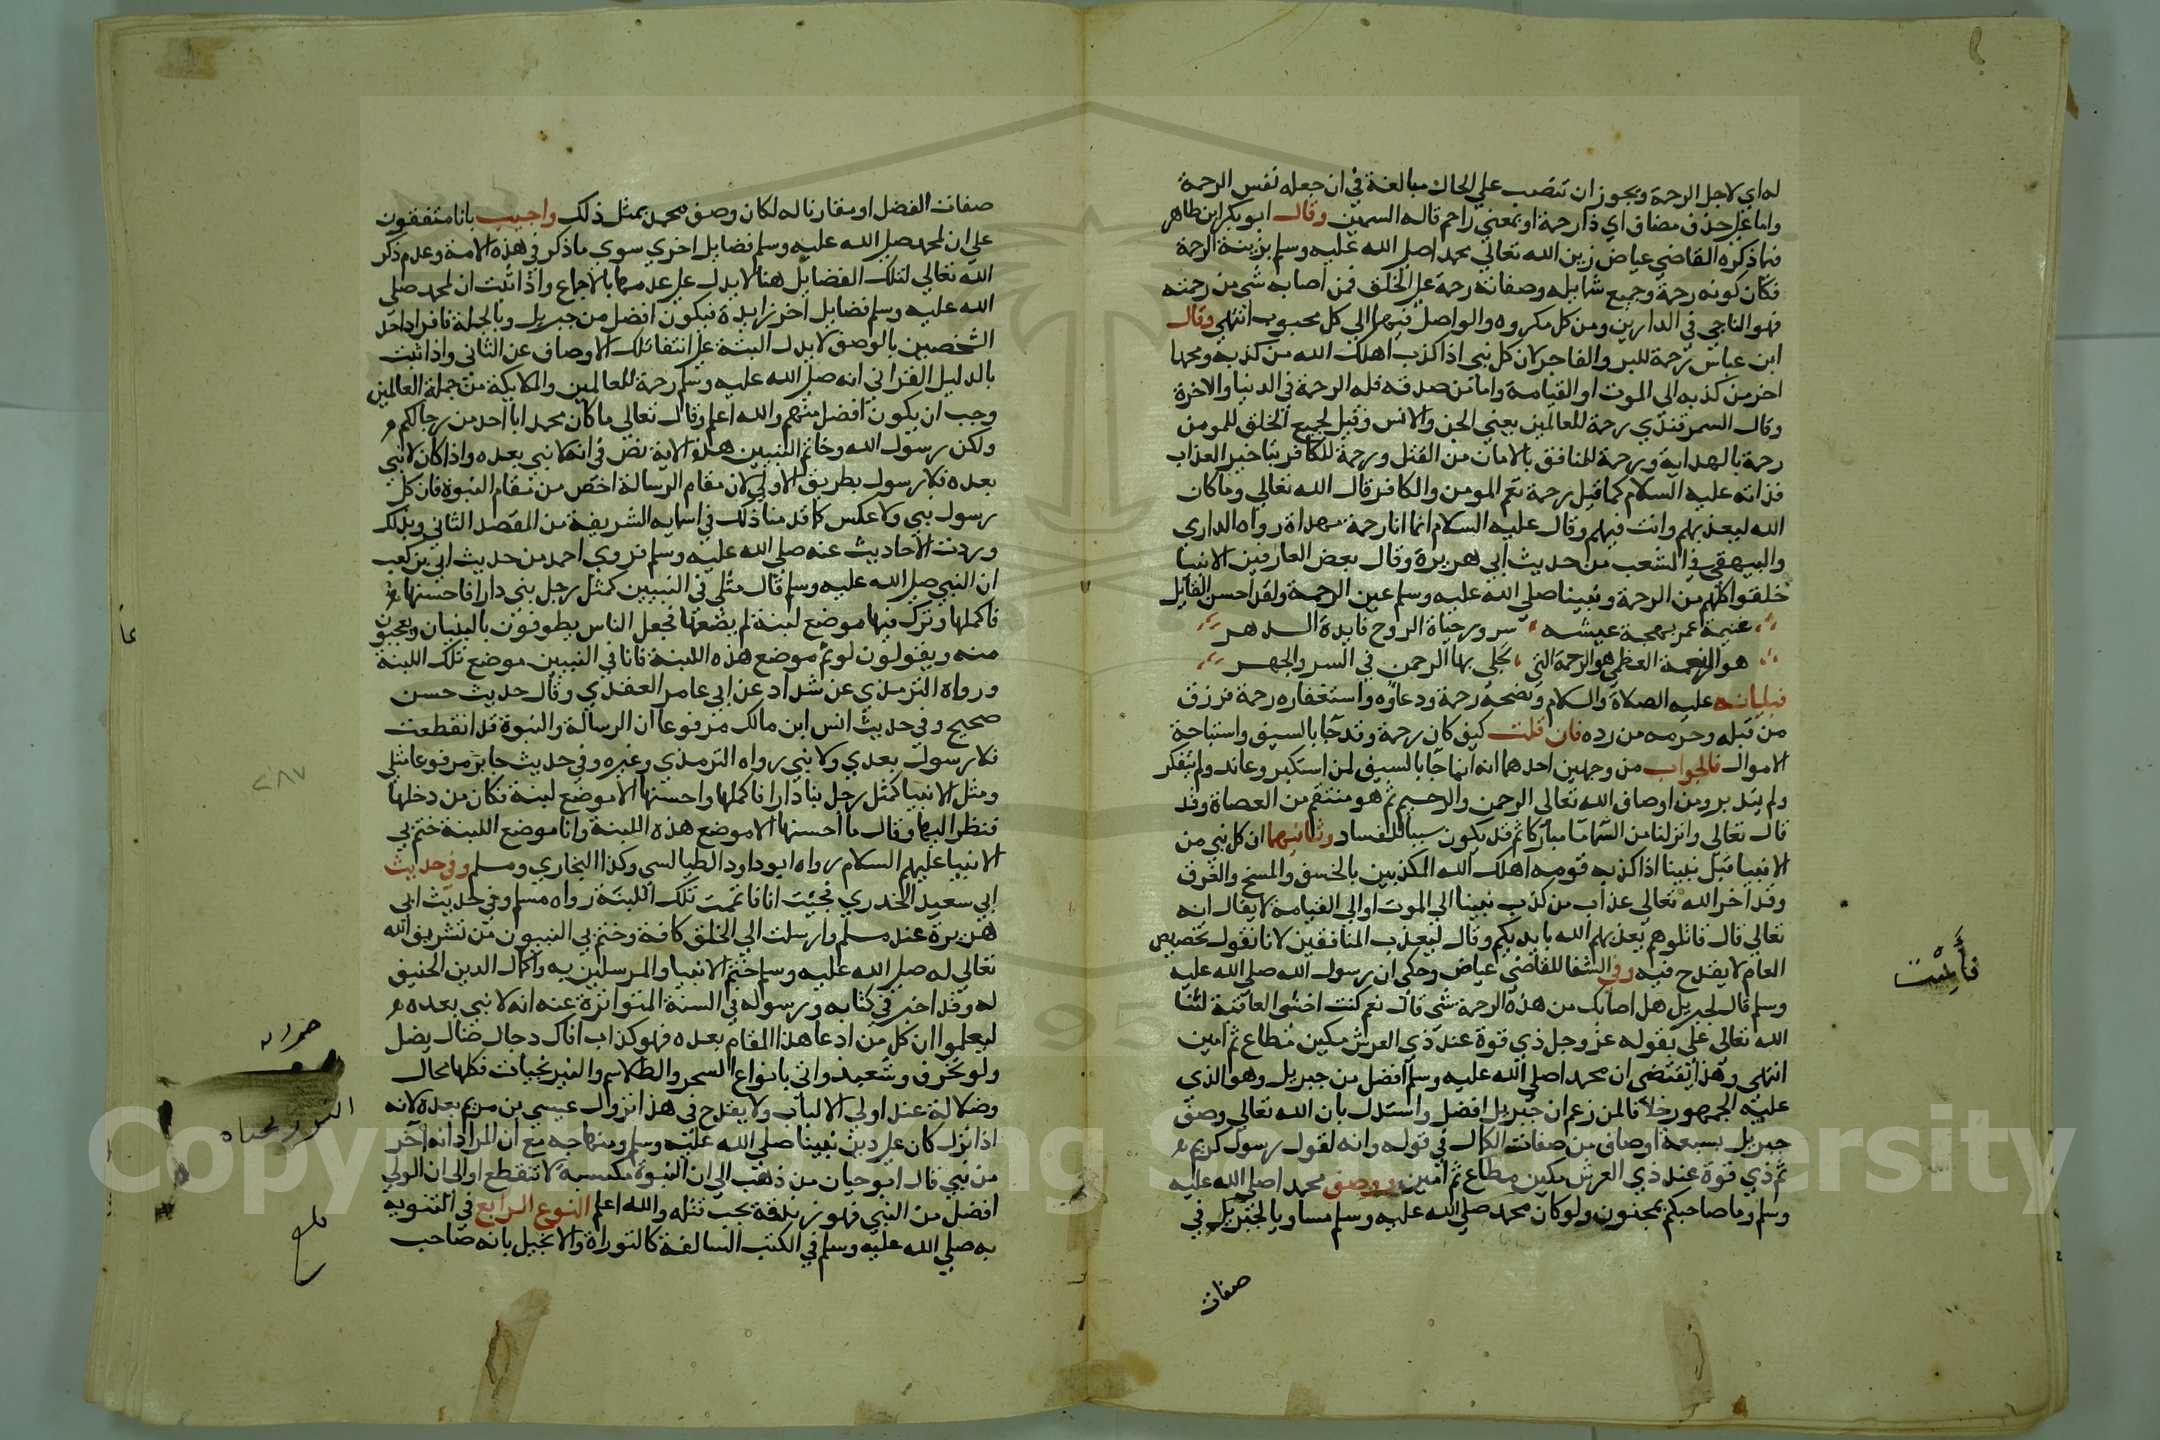 له اي لاجل الرحمة ويجوز ان تنتصب علي الحال مبالغة في ان جعله نفس الرحمة
واما علي حذف مضاف اي ذا رحمة او بمعني راحم قاله السمين وقال ابو بكر ابن طاهر
فيما ذكره القاضي عياض زين الله تعالي محمدا صلي الله عليه وسلم بزينة الرحمة
فكان كونه رحمة وجميع شمايله وصفاته رحمة علي الخلق فمن اصابه شي من رحمته
فهو الناجي في الدارين ومن كل مكروه والواصل فيهما الي كل محبوب انتهي وقال
ابن عباس رحمة للبر والفاجر لان كل نبي اذا كذب اهلك الله من كذبه ومحمدا
اخر من كذبه الي الموت او القيامة واما من صدقه فله الرحمة في الدنيا والاخرة
وقال السمرقندي رحمة للعالمين يعني الجن والانس وقيل لجميع الخلق للمومن
رحمة بالهداية ورحمة للمنافق بالامان من القتل ورحمة للكافر بتاخير العذاب
فذاته عليه السلام كما قيل رحمة تعم المومن والكافر قال الله تعالي وما كان
الله ليعذبهم وانت فيهم وقال عليه السلام انما انا رحمة مهداة رواه الداري
والبيهقي في الشعب من حديث ابي هريرة وقال بعض العارفين الانبيا
خلقوا كلهم من الرحمة ونبينا صلي الله عليه وسلم عين الرحمة ولقد احسن القايل
غنيمة عمر بهجة عيشه سرور حياة الروح فايدة الدهر
هو النعمة العظمي هو الرحمة التي تجلي بها الرحمن في السر والجهر
فبليانه عليه الصلاة والسلام ونصحه رحمة ودعاؤه واستغفاره رحمة فرزق
من قبله وحرمه من رده فان قلت كيف كان رحمة وقد جا بالسيف واستباحة
الاموال فالجواب من وجهين احدهما انه انما جا بالسيف لمن استكبر وعاند ولم يتفكر
ولم يتدبر ومن اوصاف الله تعالي الرحمن والرحيم ثم هو منتقم من العصاة وقد
قال تعالي وانزلنا من السما ما مباركا ثم قد يكون سببا للفساد وثانيهما ان كل نبي من
الانبيا قبل نبينا اذا كذبه قومه اهلك الله المكذبين بالخسف والمسخ والغرق
وقد اخر الله تعالي عذاب من كذب نبينا الي الموت او الي القيامة لا يقال انه
تعالي قال قاتلوهم يعذبهم الله بايديكم وقال ليعذب المنافقين لانا نقول تخصيص
العام لا يقدح فيه وفي الشفا للقاضي عياض وحكي ان رسول الله صلي الله عليه
وسلم قال لجبريل هل اصابك من هذه الرحمة شي قال نعم كنت اخشي العاقبة لثنا
الله تعالي علي بقوله عز وجل ذي قوة عند ذي العرش مكين مطاع ثم امين
انتهي وهذا يقتضي ان محمدا صلي الله عليه وسلم افضل من جبريل وهو الذي
عليه الجمهور خلافا لمن زعم ان جبريل افضل واستدل بان الله تعالي وصف
جبريل بسبعة اوصاف من صفات الكمال في قوله وانه لقول رسول كريم
ثم ذي قوة عند ذي العرش مكين مطاع ثم امين ووصف محمدا صلي الله عليه
وسلم وما صاحبكم بمجنون ولو كان محمد صلي الله عليه وسلم مساويا لجبريل في
صفات
صفات الفضل او مقارنا له لكان وصف محمد بمثل ذلك واجيب بانا متفقون
علي ان لمحمد صلي الله عليه وسلم فضايل اخري سوي ما ذكر في هذه الامة وعدم ذكر
الله تعالي لتلك الفضايل هنا لا يدل علي عدمها بالاجماع واذا ثبت ان لمحمد صلي
الله عليه وسلم فضايل اخر زايدة فيكون افضل من جبريل وبالجملة فافراد احد
الشخصين بالوصف لا يدل البتة علي انتفا تلك الاوصاف عن الثاني واذا ثبت
بالدليل القراني انه صلي الله عليه وسلم رحمة للعالمين والملايكة من جملة العالمين
وجب ان يكون افضل منهم والله اعلم وقال تعالي ما كان محمد ابا احد من رجالكم
ولكن رسول الله وخاتم النبيين هذه الاية نص في انه لا نبي بعده واذا كان لا نبي
بعده فلا رسول بطريق الاولي لان مقام الرسالة اخص من مقام النبوة فان كل
رسول نبي ولا عكس كما قدمنا ذلك في اسمايه الشريفة من المقصد الثاني وبذلك
وردت الاحاديث عنه صلي الله عليه وسلم فروي احمد من حديث ابي بن كعب
ان النبي صلي الله عليه وسلم قال مثلي في النبيين كمثل رجل بني دارا فاحسنها
فاكملها وترك فيها موضع لبنة لم يضعها فجعل الناس يطوفون بالبنيان ويعجبون
منه ويقولون لو تم موضع هذه اللبنة فانا في النبيين موضع تلك اللبنة
ورواه الترمذي عن شداد عن ابي عامر العقدي وقال حديث حسن
صحيح وفي حديث انس ابن مالك مرفوعا ان الرسالة والنبوة قد انقطعت
فلا رسول بعدي ولا نبي رواه الترمذي وغيره وفي حديث جابر مرفوعا مثلي
ومثل الانبيا كمثل رجل بنا دارا فاكملها واحسنها الا موضع لبنة فكان من دخلها
فنظر اليها وقال ما احسنها الا موضع هذه اللبنة وانا موضع اللبنة ختم بي
الانبيا عليهم السلام رواه ابو داود الطيالسي وكذا البخاري ومسلم وفي حديث
ابي سعيد الخدري فجيت انا فاتممت تلك اللبنة رواه مسلم وفي حديث ابي
هريرة عند مسلم وارسلت الي الخلق كافة وختم بي النبيون من تشريف الله
تعالي له صلي الله عليه وسلم ختم الانبيا والمرسلين به واكمال الدين الحنيف
له وقد اخبر في كتابه ورسوله في السنة المتواترة عنه انه لا نبي بعده
ليعلموا ان كل من ادعا هذا المقام بعده فهو كذاب افاك دجال ضال يضل
ولو تخرق وشعبذ واتي بانواع السحر والطلاسم والنيرنجيات فكلها محال
وضلالة عند اولي الالباب ولا يقدح في هذا نزول عيسي بن مريم بعده لانه
اذا نزل كان علي دين نبينا صلي الله عليه وسلم ومنهاجه مع ان المراد انه اخر
من نبي قال ابو حيان من ذهب الي ان النبوة مكتسبة لا تنقطع او الي ان الولي
افضل من النبي فهو زنديق يجب قتله والله اعلم النوع الرابع في التنويه
به صلي الله عليه وسلم في الكتب السالفة كالتوراة والانجيل بانه صاحب
٢٨٧
Copyright © King Saud University